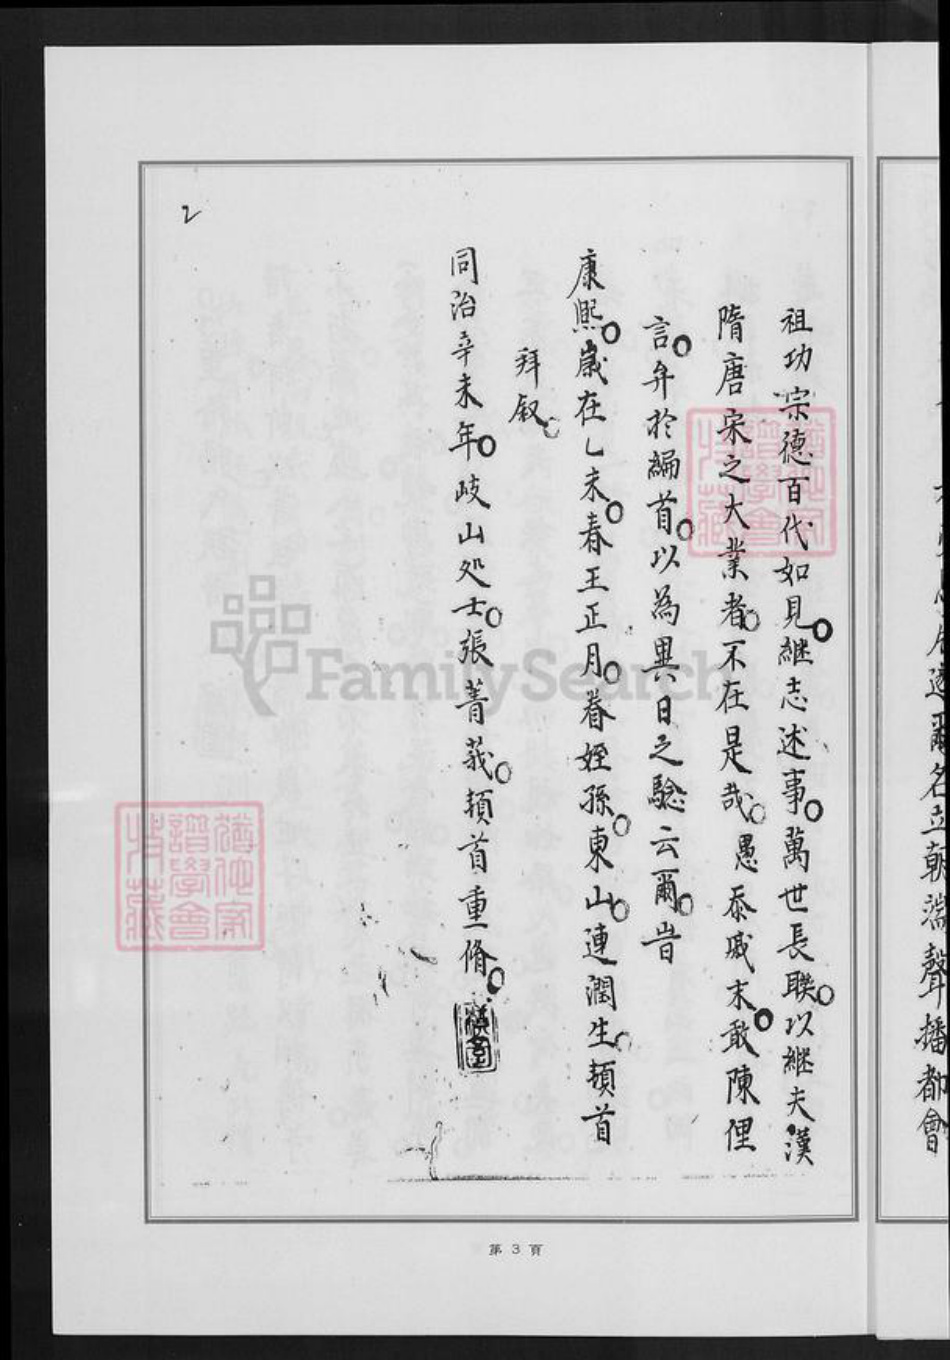 祖功宗德百代如見。継志述事。萬世長聫。以継夫漢
隋唐宋之大業者。不在是哉。愚忝戚末。敢陳俚
言。弁於編首。以為異日之驗云爾。旹
康熙。歲在乙未。春王正月。眷姪孫。東山。連潤生。頓首
拜叙。
同治辛未年。岐山処士。張菁莪。頓首重脩。
2
第 3 頁
FamilySearch
名立朝端聲播都會